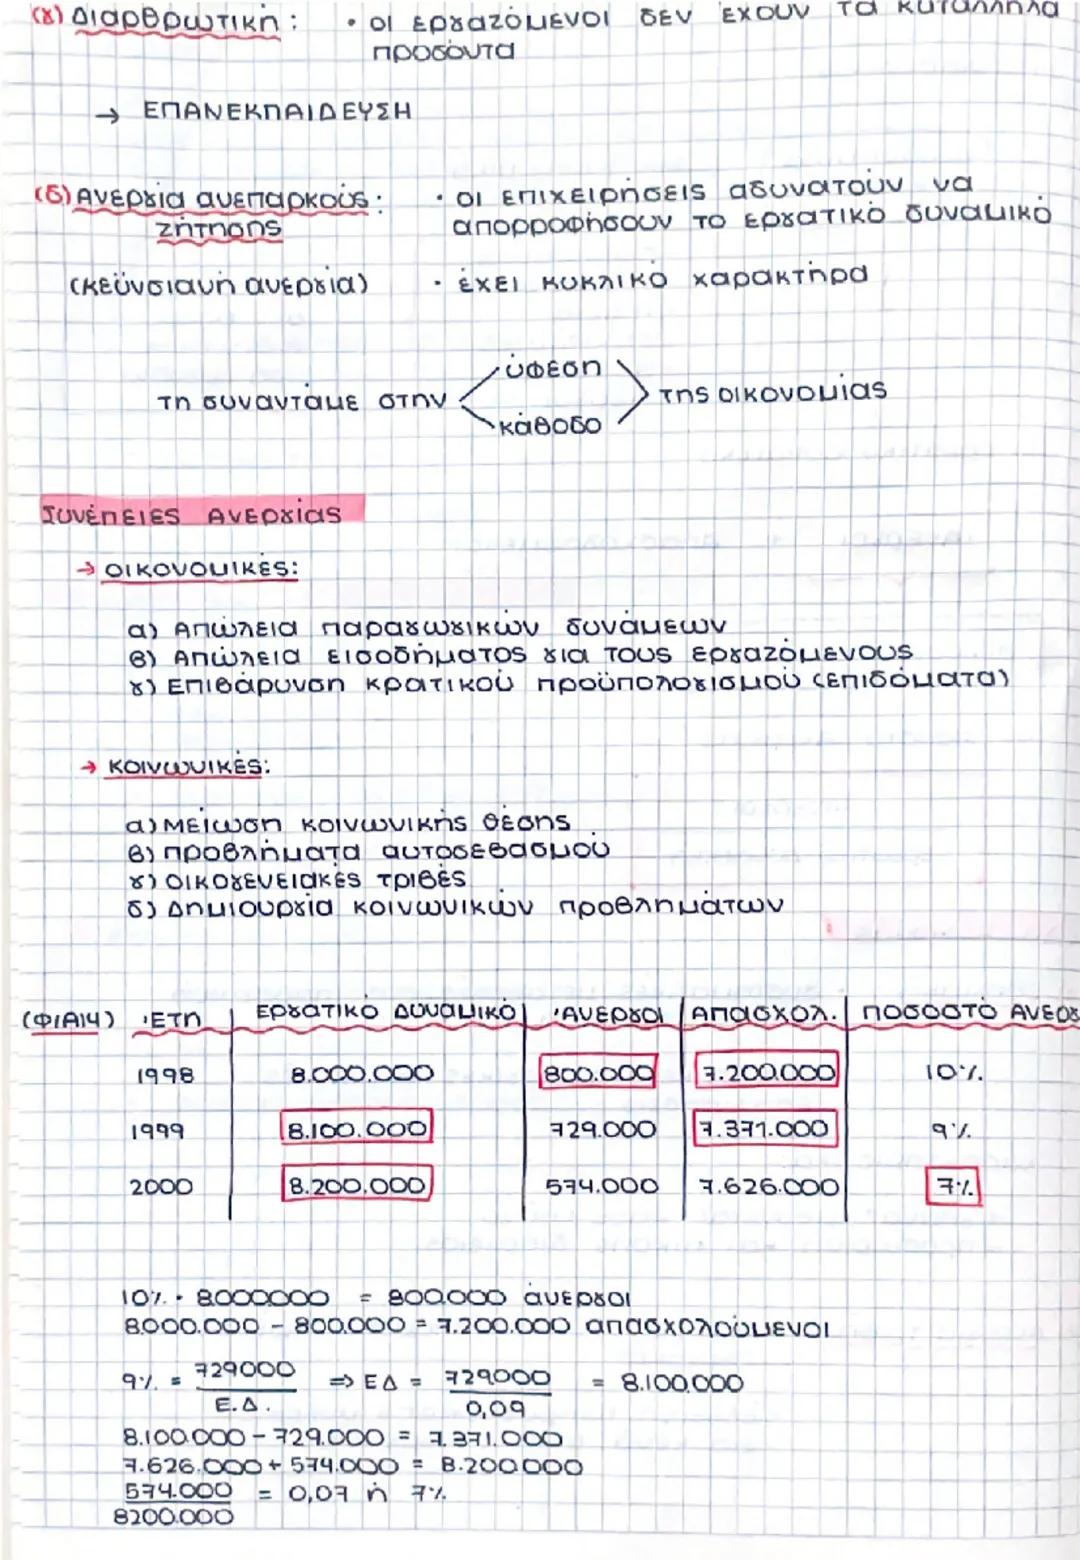 (γ) Διαρθρωτική : • οι εργαζόμενοι δεν έχουν τα κατάλληλα
προσόντα
→ ΕΠΑΝΕΚΠΑΙΔΕΥΣΗ
(δ) Ανεργία ανεπαρκούς : • οι επιχειρήσεις αδυνατούν να
ζήτησης απορροφήσουν το εργατικό δυναμικό
(κεϋνσιανή ανεργία) • έχει κυκλικό χαρακτήρα
ύφεση
τη συναντάμε στην της οικονομίας
κάθοδο
Συνέπειες Ανεργίας
→ οικονομικές:
α) Απώλεια παραγωγικών δυνάμεων
β) Απώλεια εισοδήματος για τους εργαζόμενους
γ) Επιβάρυνση κρατικού προϋπολογισμού (επιδόματα)
→ κοινωνικές:
α) Μείωση κοινωνικής θέσης
β) προβλήματα αυτοσεβασμού
γ) οικογενειακές τριβές
δ) Δημιουργία κοινωνικών προβλημάτων
(Φ1Α14) Έτη Εργατικό Δυναμικό Άνεργοι Απασχολ. Ποσοστό Ανεργ
1998 8.000.000 800.000 7.200.000 10%
1999 8.100.000 729.000 7.371.000 9%
2000 8.200.000 574.000 7.626.000 7%
10% • 8000000 = 800.000 άνεργοι
8.000.000 - 800.000 = 7.200.000 απασχολούμενοι
9% = 729000 / Ε.Δ. ⇒ ΕΔ = 729000 / 0,09 = 8.100.000
8.100.000 - 729.000 = 7.371.000
7.626.000 + 574.000 = 8.200.000
574.000 / 8200.000 = 0,07 ή 7%